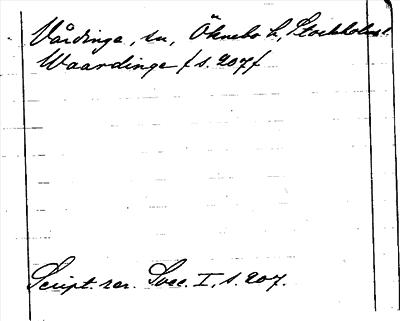 Vårdinge, sn, Öknebo h, Stockholms l.
Waardinge f s. 207f
Script. rer. Svec. I, s. 207.